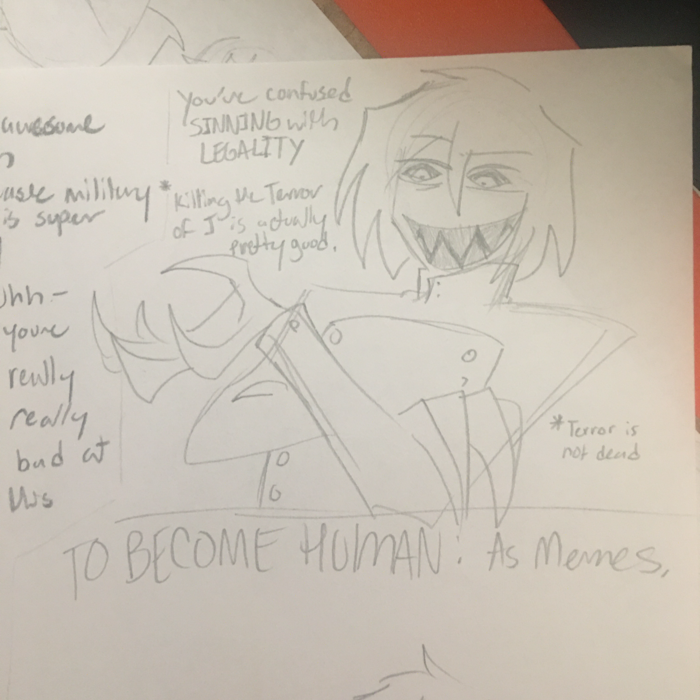 awesome
military
is super
uhh-
youre
really
really
bad at
this
You've confused
SINNING with
LEGALITY
*Killing the Terror
of J is actually
pretty good.
*Terror is
not dead
TO BECOME HUMAN: As Memes,